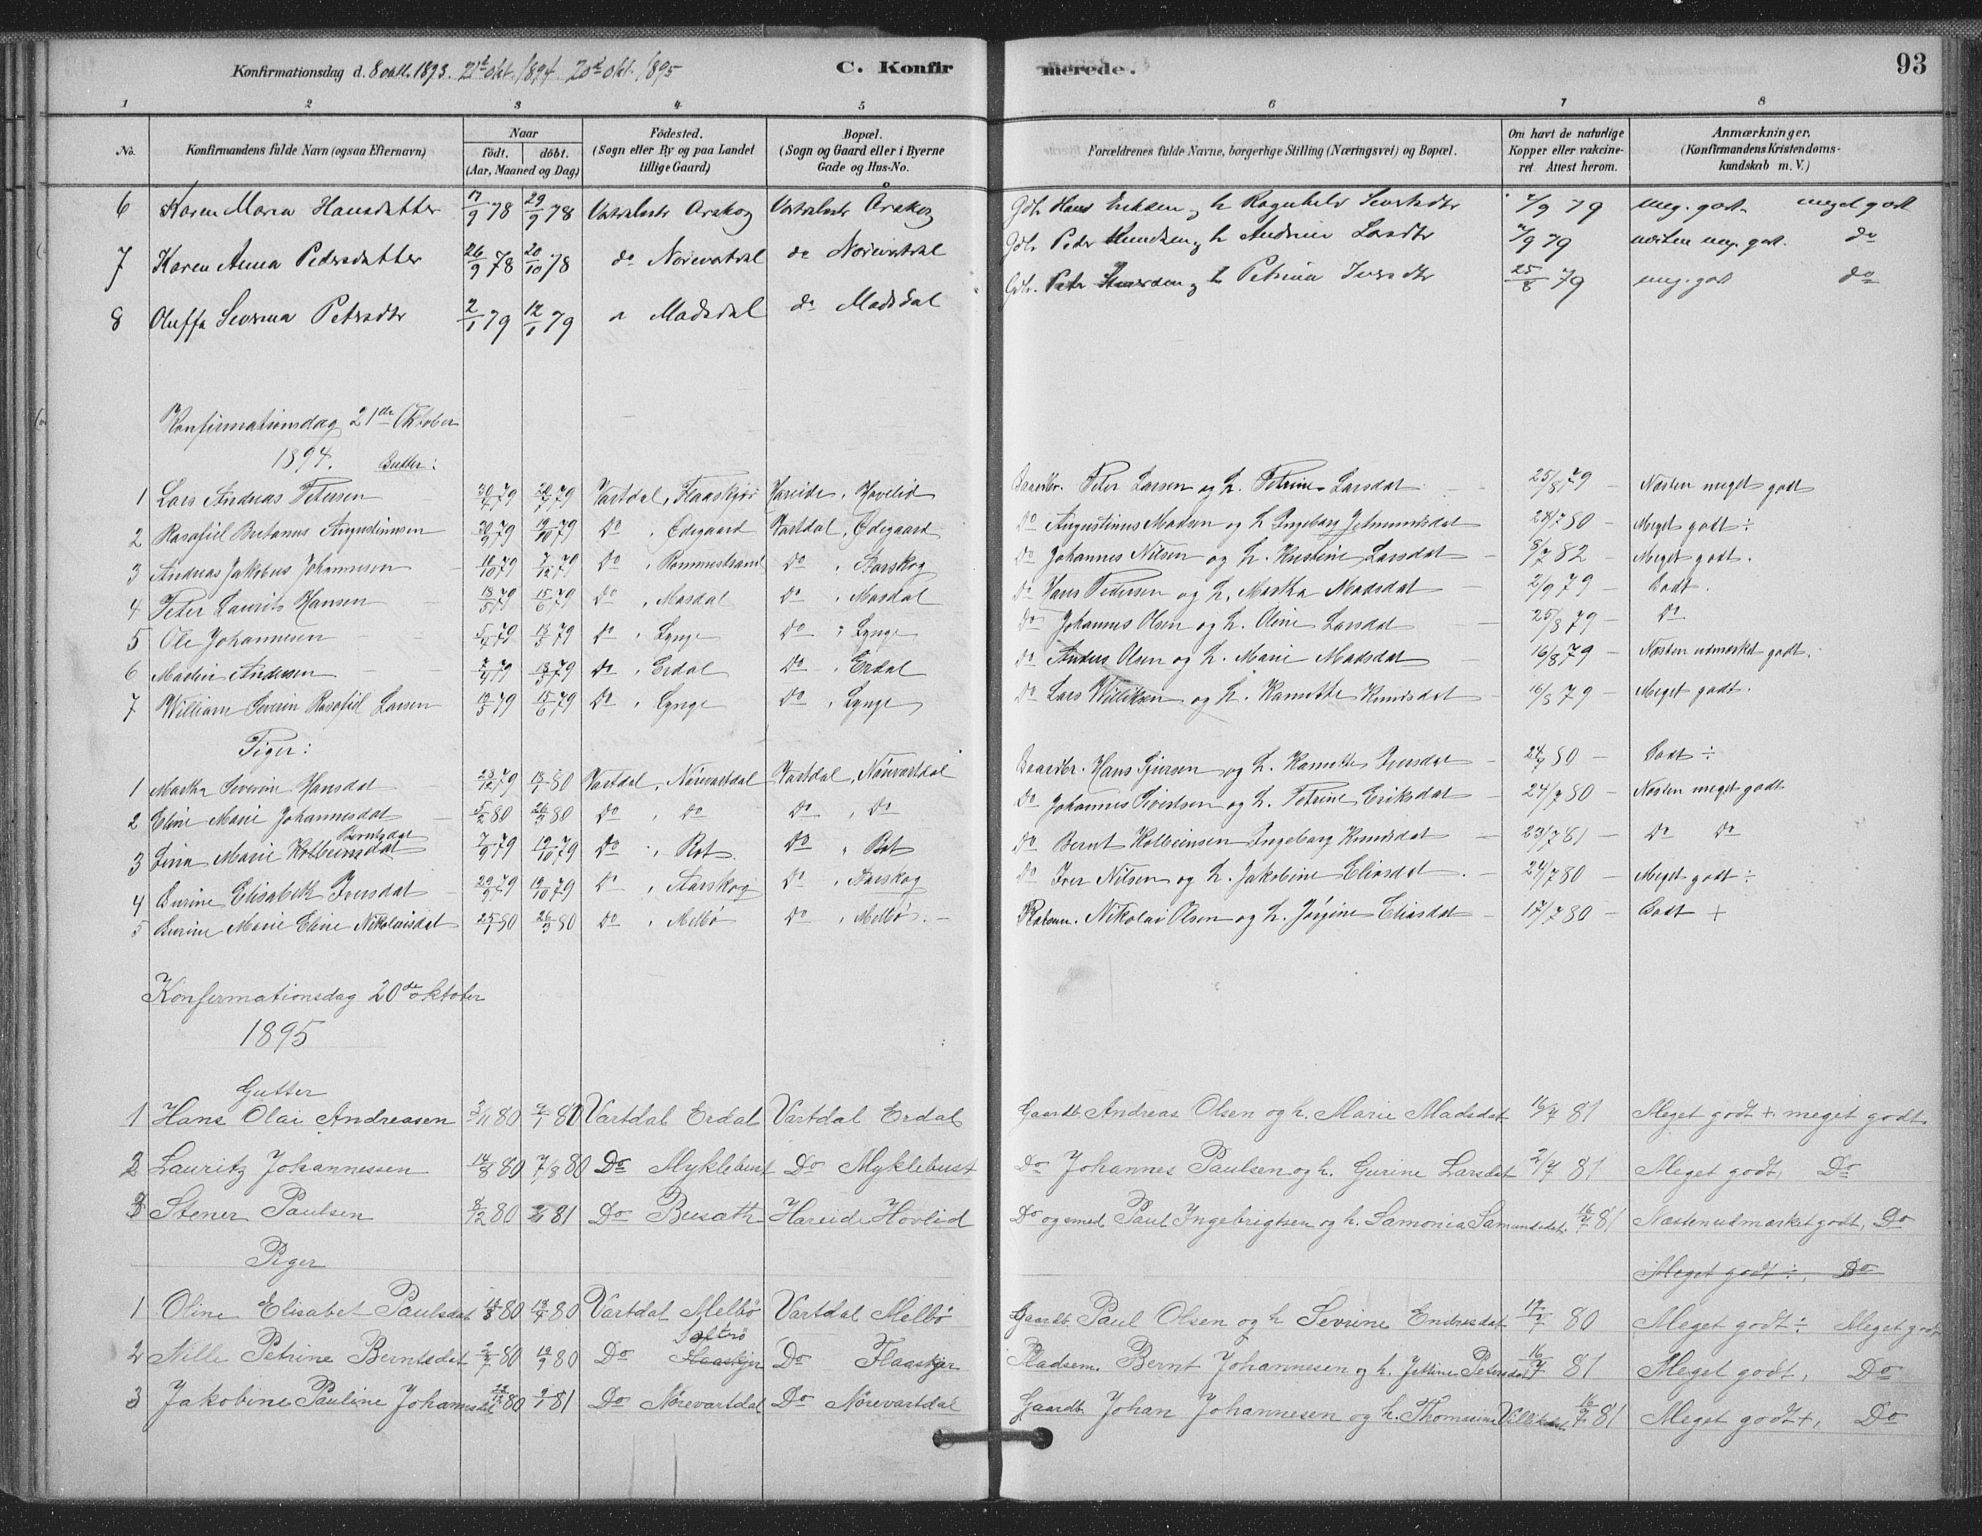 Konfirmationsdag d. 8 okt. 1893. 21de okt. 1894. 20de okt. 1895
C. Konfirmerede. 93
1 2 3 4 5 6 7 8
No. Konfirmandens fulde Navn (ogsaa Efternavn) Naar födt. döbt. (Aar, Maaned og Dag) Födested. (Sogn eller By og paa Landet tillige Gaard) Bopæl. (Sogn og Gaard eller i Byerne Gade og Hus-No. Forældrenes fulde Navne, borgerlige Stilling (Næringsvei) og Bopæl. Om havt de naturlige Kopper eller vakcineret Attest herom. Anmærkninger. (Konfirmandens Kristendomskundskab m. V.)
6 Karen Maria Hansdatter 17/9 78 29/9 78 Årskog Årskog Gdb. Hans h Ragnhild /9 79 meg. godt meget godt
7 Karen Anna Pedersdatter 26/9 78 20/10 78 do Nörevartdal do Nörevartdal Gdb. Peder Knudsen og h Andrine Larsdtr /9 79 næsten meg. godt. do
8 Oluffa Severina Petersdtr 2/1 79 12/1 79 Madsdal do Madsdal Gdb. Peter og h Petrina Iversdtr 25/8 79 meg. godt do
Konfirmationsdag 21de Oktober
1894. Gutter:
1 Lars Andreas Petersen 79 79 Vartdal, Flaaskjær Hareide, Hovlid Gaardbr. Peter Larsen og h. Petrine Larsdat 25/8 79 – Næsten meget godt
2 Rasafiel Bertanus Augustinusen 79 19/10 79 Do, Ödegaard Vartdal, Ödegaard Do Augustinus Madsen og h Ingeborg Jetmundsdat 28/7 80 – Meget godt ÷
3 Andreas Jakobus Johannesen /10 79 7/12 79 Do, Rommestrand Do, Aarskog Do Johannes Nilsen og h. Kristine Larsdat 8/7 82 – Meget godt.
4 Peter Laurits Hansen 18/5 79 15/6 79 Do, Masdal Do, Masdal Do Hans Pedersen og h. Martha Madsdat 2/9 79 – Godt.
5 Ole Johannesen 79 13/5 79 Do, Lynge Do, Lynge Do Johannes Olsen og h. Oline Larsdat 25/8 79 – Do
6 Martin Andersen 79 13/5 79 Do, Erdal Do, Erdal Do Anders Olsen og h. Marie Madsdat 16/8 79 – Næsten udmærket godt.
7 William Severin Rasafiel Larsen 12/5 79 15/6 79 Do, Lynge Do, Lynge Do Lars Williksen og h. Hansette Knudsdat 16/8 79 – Meget godt.
Piger:
1 Martha Severine Hansdat 23/12 79 18/1 80 Vartdal, Nörevartdal Vartdal, Nörevartdal Gaardbr. Hans Sjursen og h. Iversdat 24/7 80 – Godt ÷
2 Eline Marie Johannesdat 5/2 80 80 Do, Do Do, Do Do Johannes Sivertsen og h. Petrine Eriksdat 24/7 80 – Næsten meget godt
Berntsdat
3 Lina Marie Kolbeinsdat 7/9 79 19/10 79 Do, Rot Do, Rot Do Bernt Kolbeinsen Ingeborg Knudsdat 23/7 81 Do Do
4 Gurine Elisabeth Iversdat 29/9 79 19/10 79 Do, Aarskog Do, Aarskog Do Iver Nilsen og h. Jakobine Eliasdat 24/7 80 – Meget godt ÷
5 Gurine Marie Eline Nikolaisdat 25/1 80 26/3 80 Do, Melbö Do, Melbö Pladsm. Nikolai Olsen og h. Jørgine Eliasdat 17/7 80 – Godt +
Konfirmationsdag 20de oktober
1895
Gutter
1 Hans Olai Andreasen 3/11 80 80 Vartdal Erdal Vartdal Erdal Gaardb. Andreas Olsen og h. Marie Madsdat 16/7 81 Meget godt + meget godt
2 Lauritz Johannessen 14/8 80 7/8 80 Do Myklebust Do Myklebust Do Johannes Paulsen og h. Gurine Larsdat 2/7 81 Meget godt, Do
3 Stener Paulsen 8/12 80 81 Do Busæth Hareide Hovlid Do og smed Paul Ingebrigtsen og h. Samonia Samundsdat. 16/7 81 Næsten udmærket godt, Do
Piger
Meget godt ÷, Do
1 Oline Elisabet Paulsdat 80 80 Vartdal Melbö Vartdal Melbö Gaardb. Paul Olsen og h Sevrine Endresdat 17/7 80 Meget godt ÷ Meget godt
Sætrö
2 Nille Petrine Berntsdat 80 19/9 80 Do Flaaskjær Do Flaaskjær Pladsem. Bernt Johannesen og h. Jettine Petersdat 16/7 81 Meget godt, Do
3 Jakobine Pauline Johansdat 80 81 Do Nörevartdal Do Nörevartdal Gaardb. Johan Johannesen og h. Thomasine Villiksdat 16/7 81 Meget godt +, Do